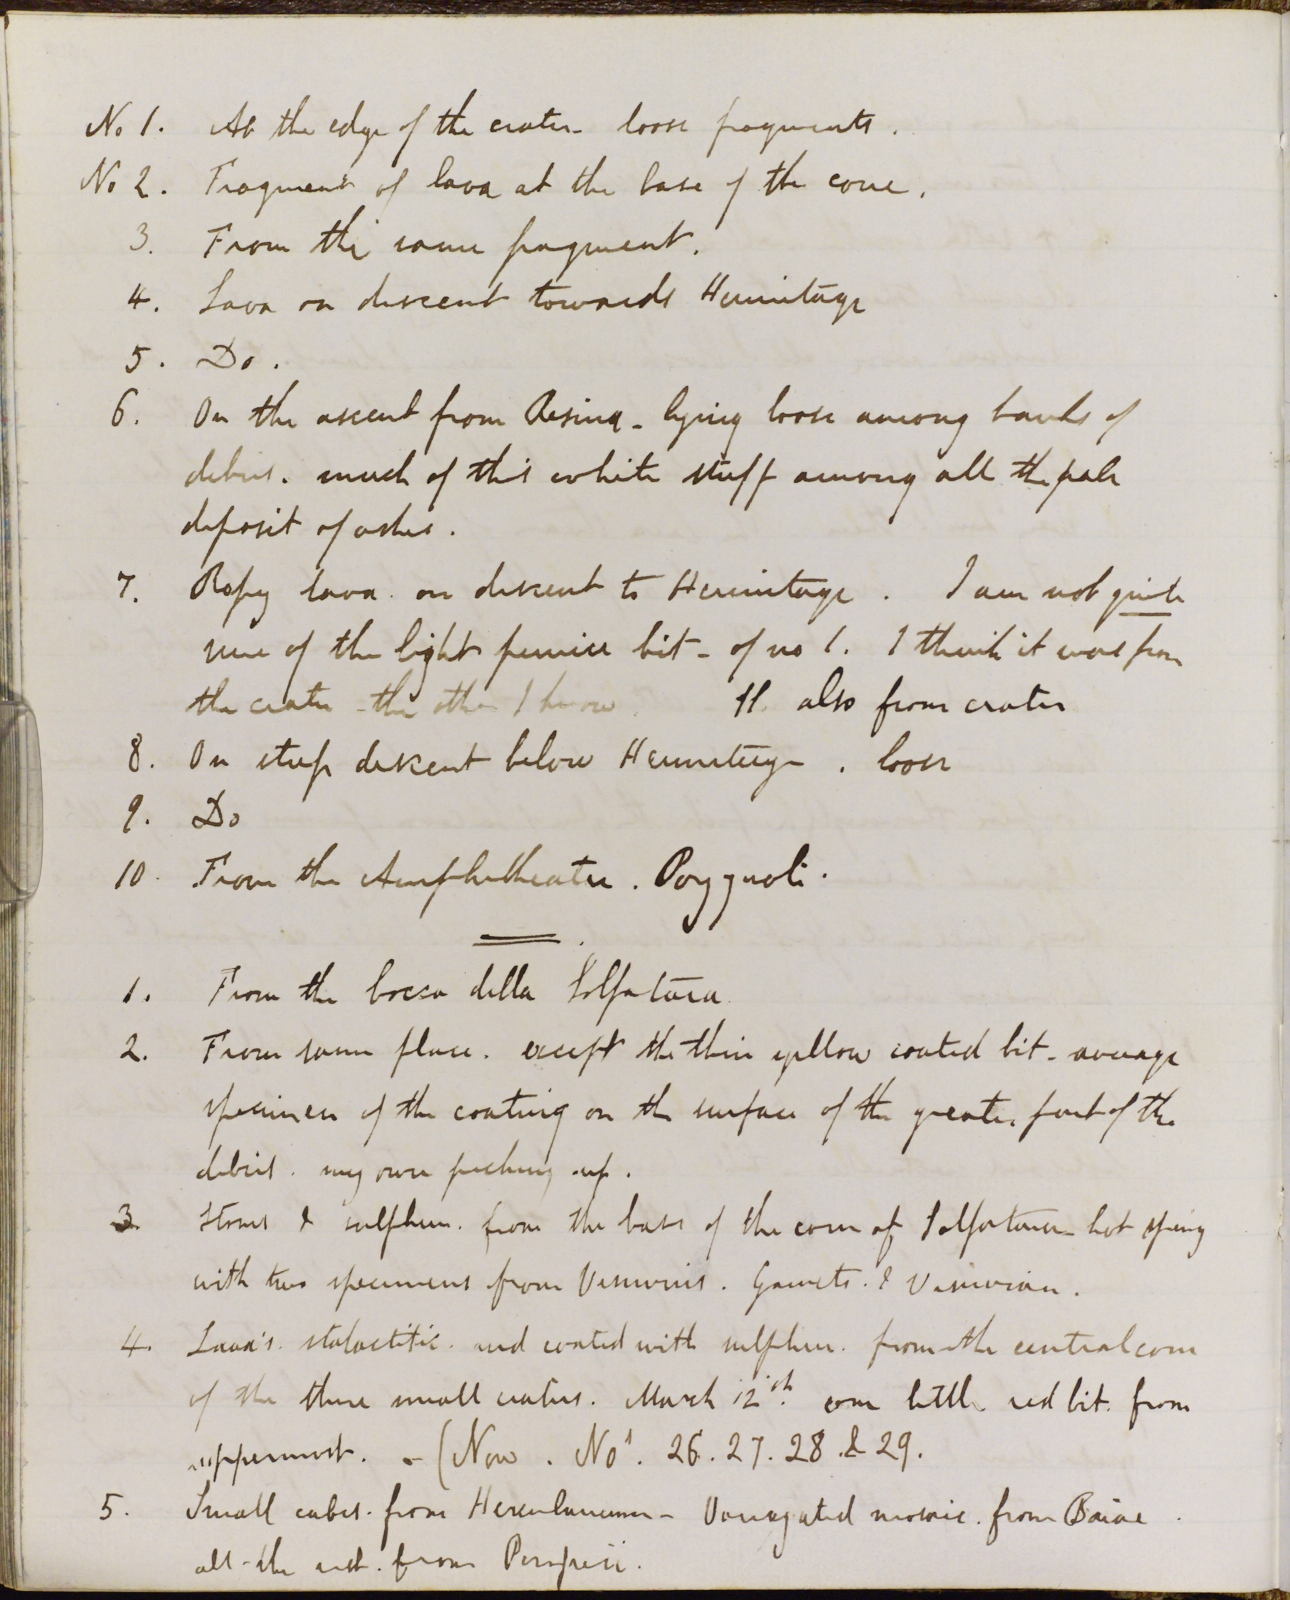 No 1. At the edge of the crater - loose fragments.
No 2. Fragment of lava at the base of the cone.
3. From the same fragment.
4. Lava on descent towards Hermitage
5. Do.
6. On the ascent from Resina - lying loose among banks of
debris. much of this white stuff among all the pale
deposit of ashes.
7. Ropy lava on descent to Hermitage. I am not quite
sure of the light pumice bit - of no 1. I think it was from
the crater - the other I know. 11. also from crater
8. On steep descent below Hermitage. loose
9. Do
10. From the Amphitheatre. Pozzuoli.
1. From the bocca della Solfatara
2. From same place. except the thin yellow coated bit - average
specimen of the coating on the surface of the greater part of the
debris. my own picking up.
3. Stones & sulphur. from the base of the cone of Solfatara - hot spring
with two specimens from Vesuvius. Garnets. & Vesuvian.
4. Lava's. stalactitic. and coated with sulphur. from the central cone
of the three small craters. March 12th. one little red bit. from
uppermost. - (Now. Nos. 26. 27. 28. & 29.
5. Small cubes. from Herculaneum - Variegated mosaic. from Baiae.
all the rest. from Pompeii.